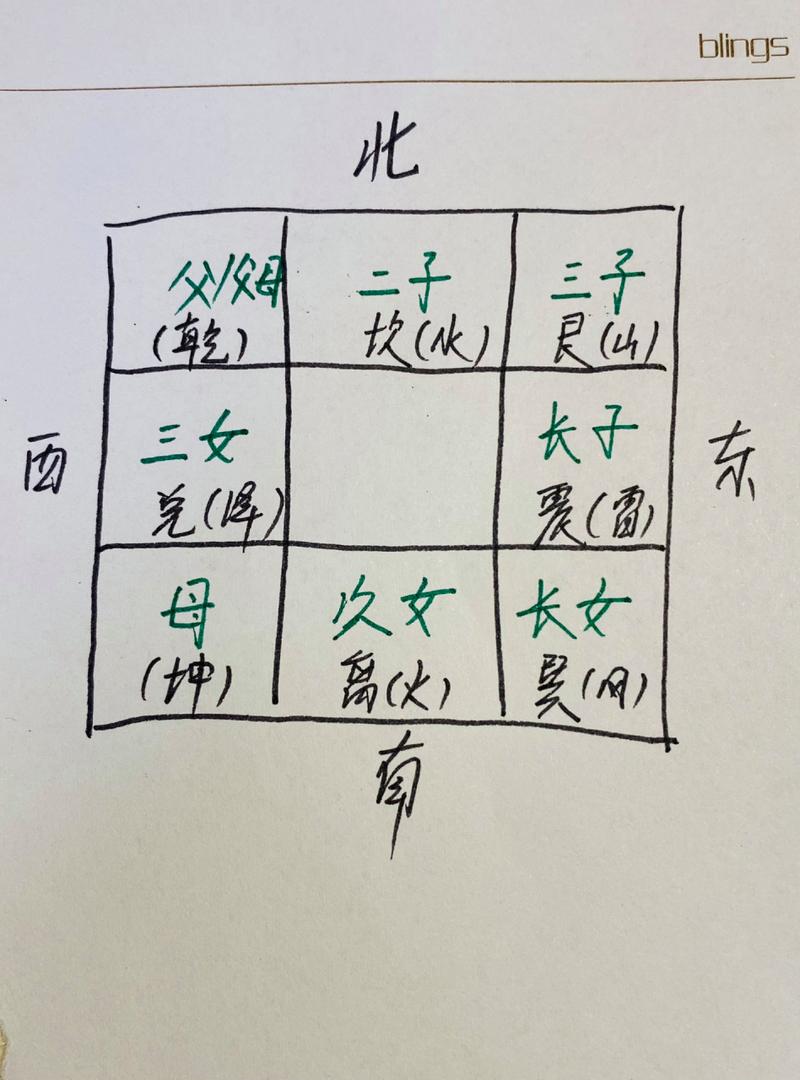 blings
北
父/父母 二子 三子
(乾) 坎(水) 艮(山)
西 三女 长子 东
兑(泽) 震(雷)
母 次女 长女
(坤) 离(火) 巽(风)
南